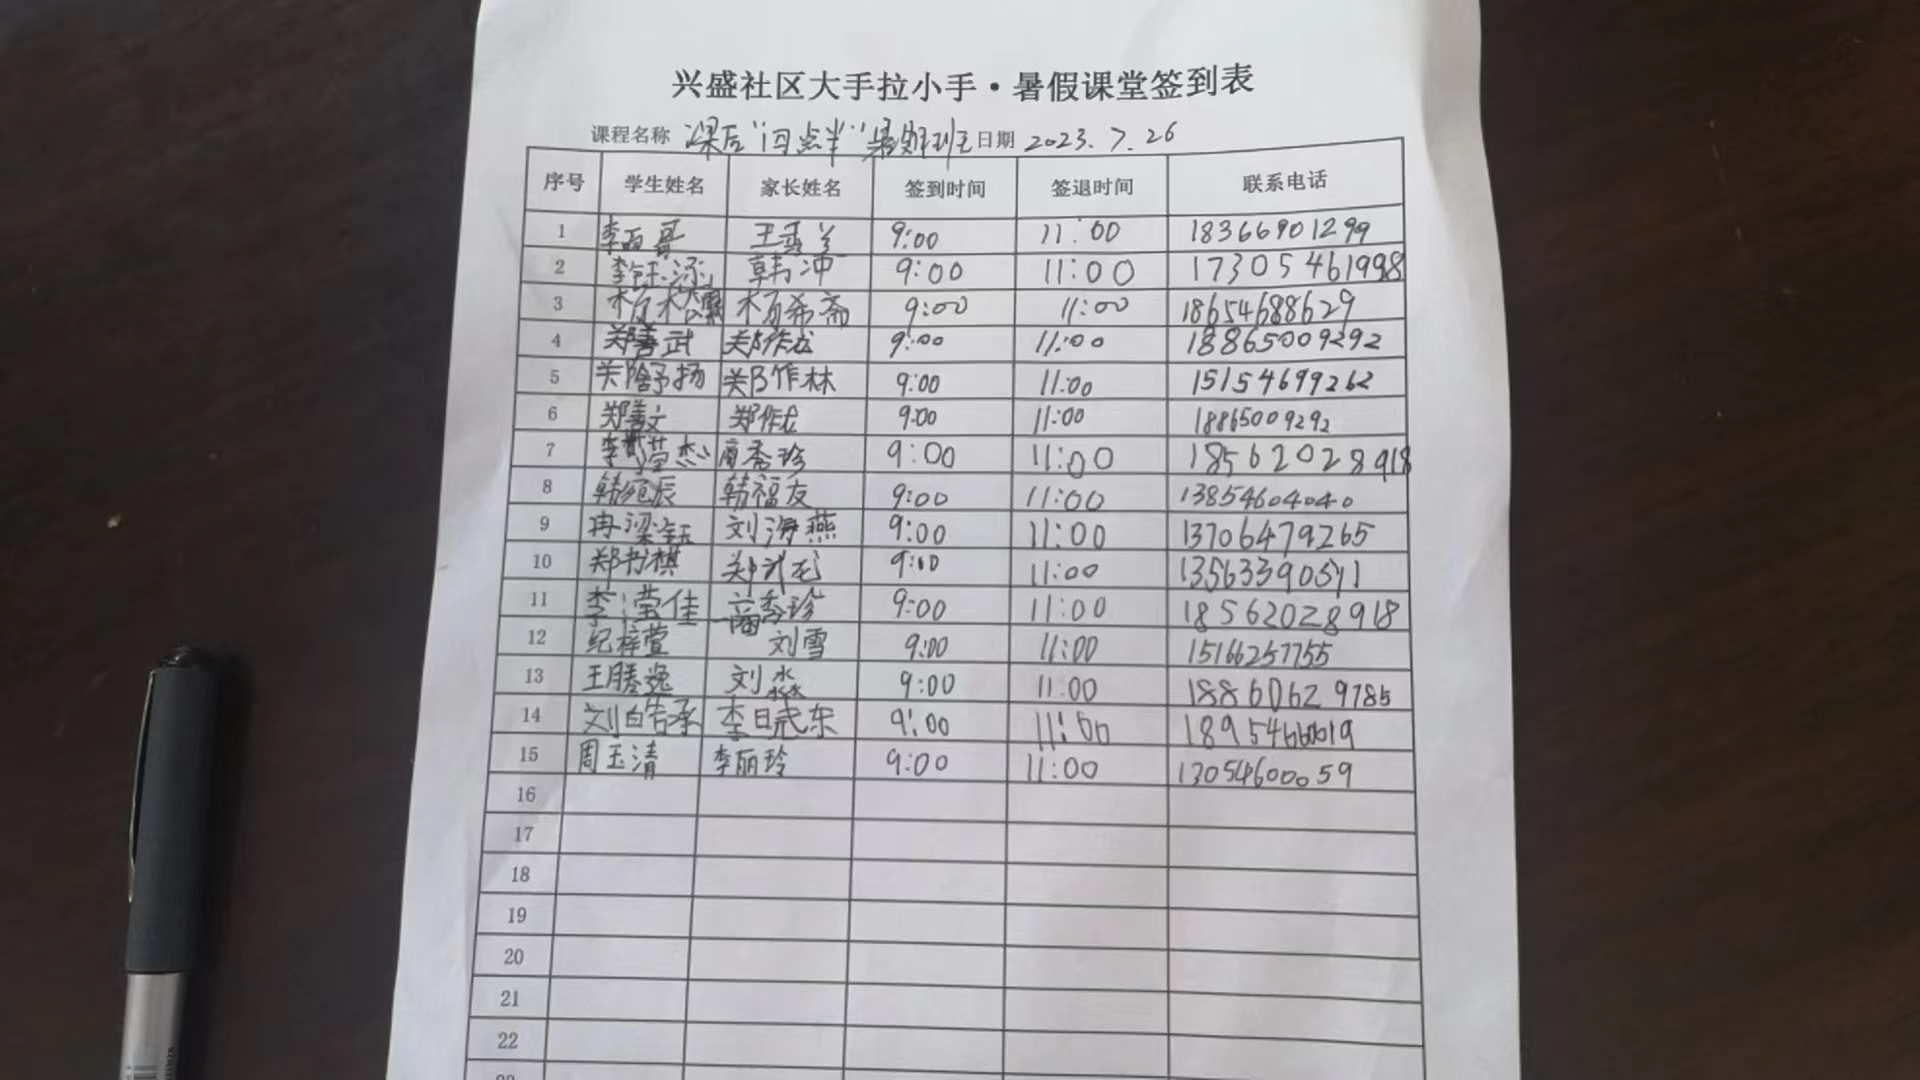 兴盛社区大手拉小手·暑假课堂签到表
课程名称 课后“四点半”暑期班 日期 2023.7.26
序号 学生姓名 家长姓名 签到时间 签退时间 联系电话
1 李雨哥 王秀兰 9:00 11:00 18366901299
2 李钰添 韩冲 9:00 11:00 17305461998
3 9:00 11:00 18654688629
4 郑善武 郑作龙 9:00 11:00 18865009292
5 关舒扬 郑作林 9:00 11:00 15154699262
6 郑善文 郑作龙 9:00 11:00 18865009292
7 李莹杰 秀珍 9:00 11:00 18562028918
8 韩宛辰 韩福友 9:00 11:00 13854604040
9 冉梁钰 刘海燕 9:00 11:00 13706479265
10 郑书棋 郑武龙 9:00 11:00 13563390511
11 李滢佳 秀珍 9:00 11:00 18562028918
12 纪梓萱 刘雪 9:00 11:00 15166257755
13 王腾逸 刘淼 9:00 11:00 18860629785
14 李晓东 9:00 11:00 18954660019
15 周玉清 李丽玲 9:00 11:00 13054600059
16
17
18
19
20
21
22